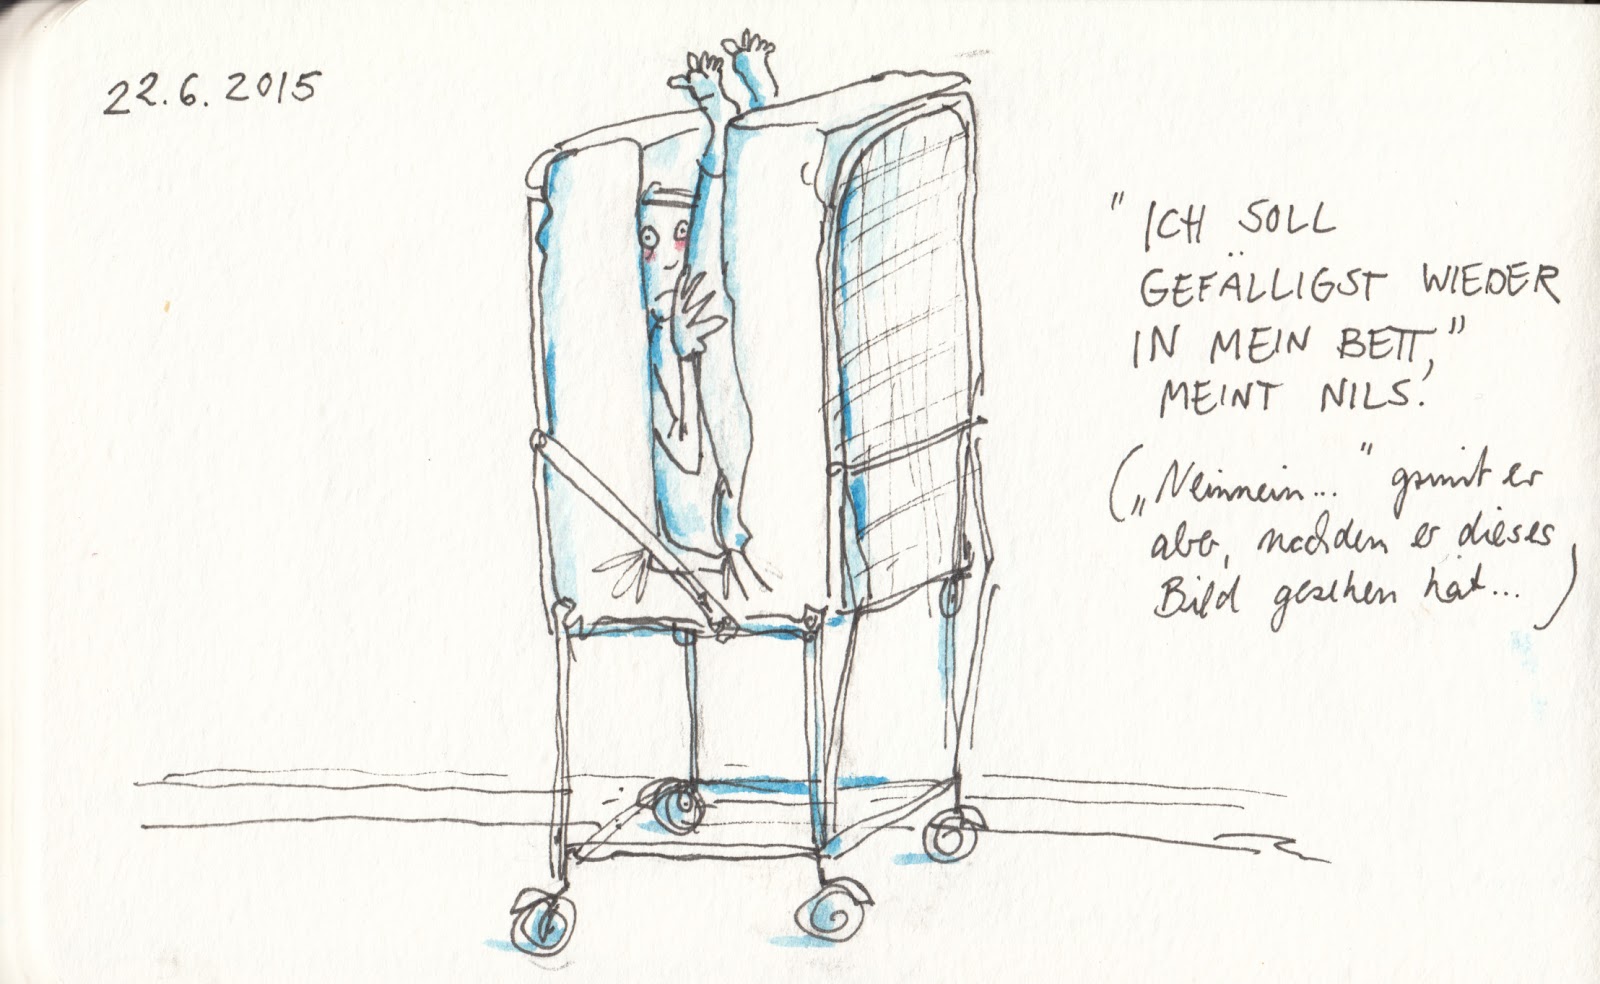 22.6.2015
"ICH SOLL
GEFÄLLIGST WIEDER
IN MEIN BETT,"
MEINT NILS.
(„Neinnein..." grinst er
aber, nachdem er dieses
Bild gesehen hat...)